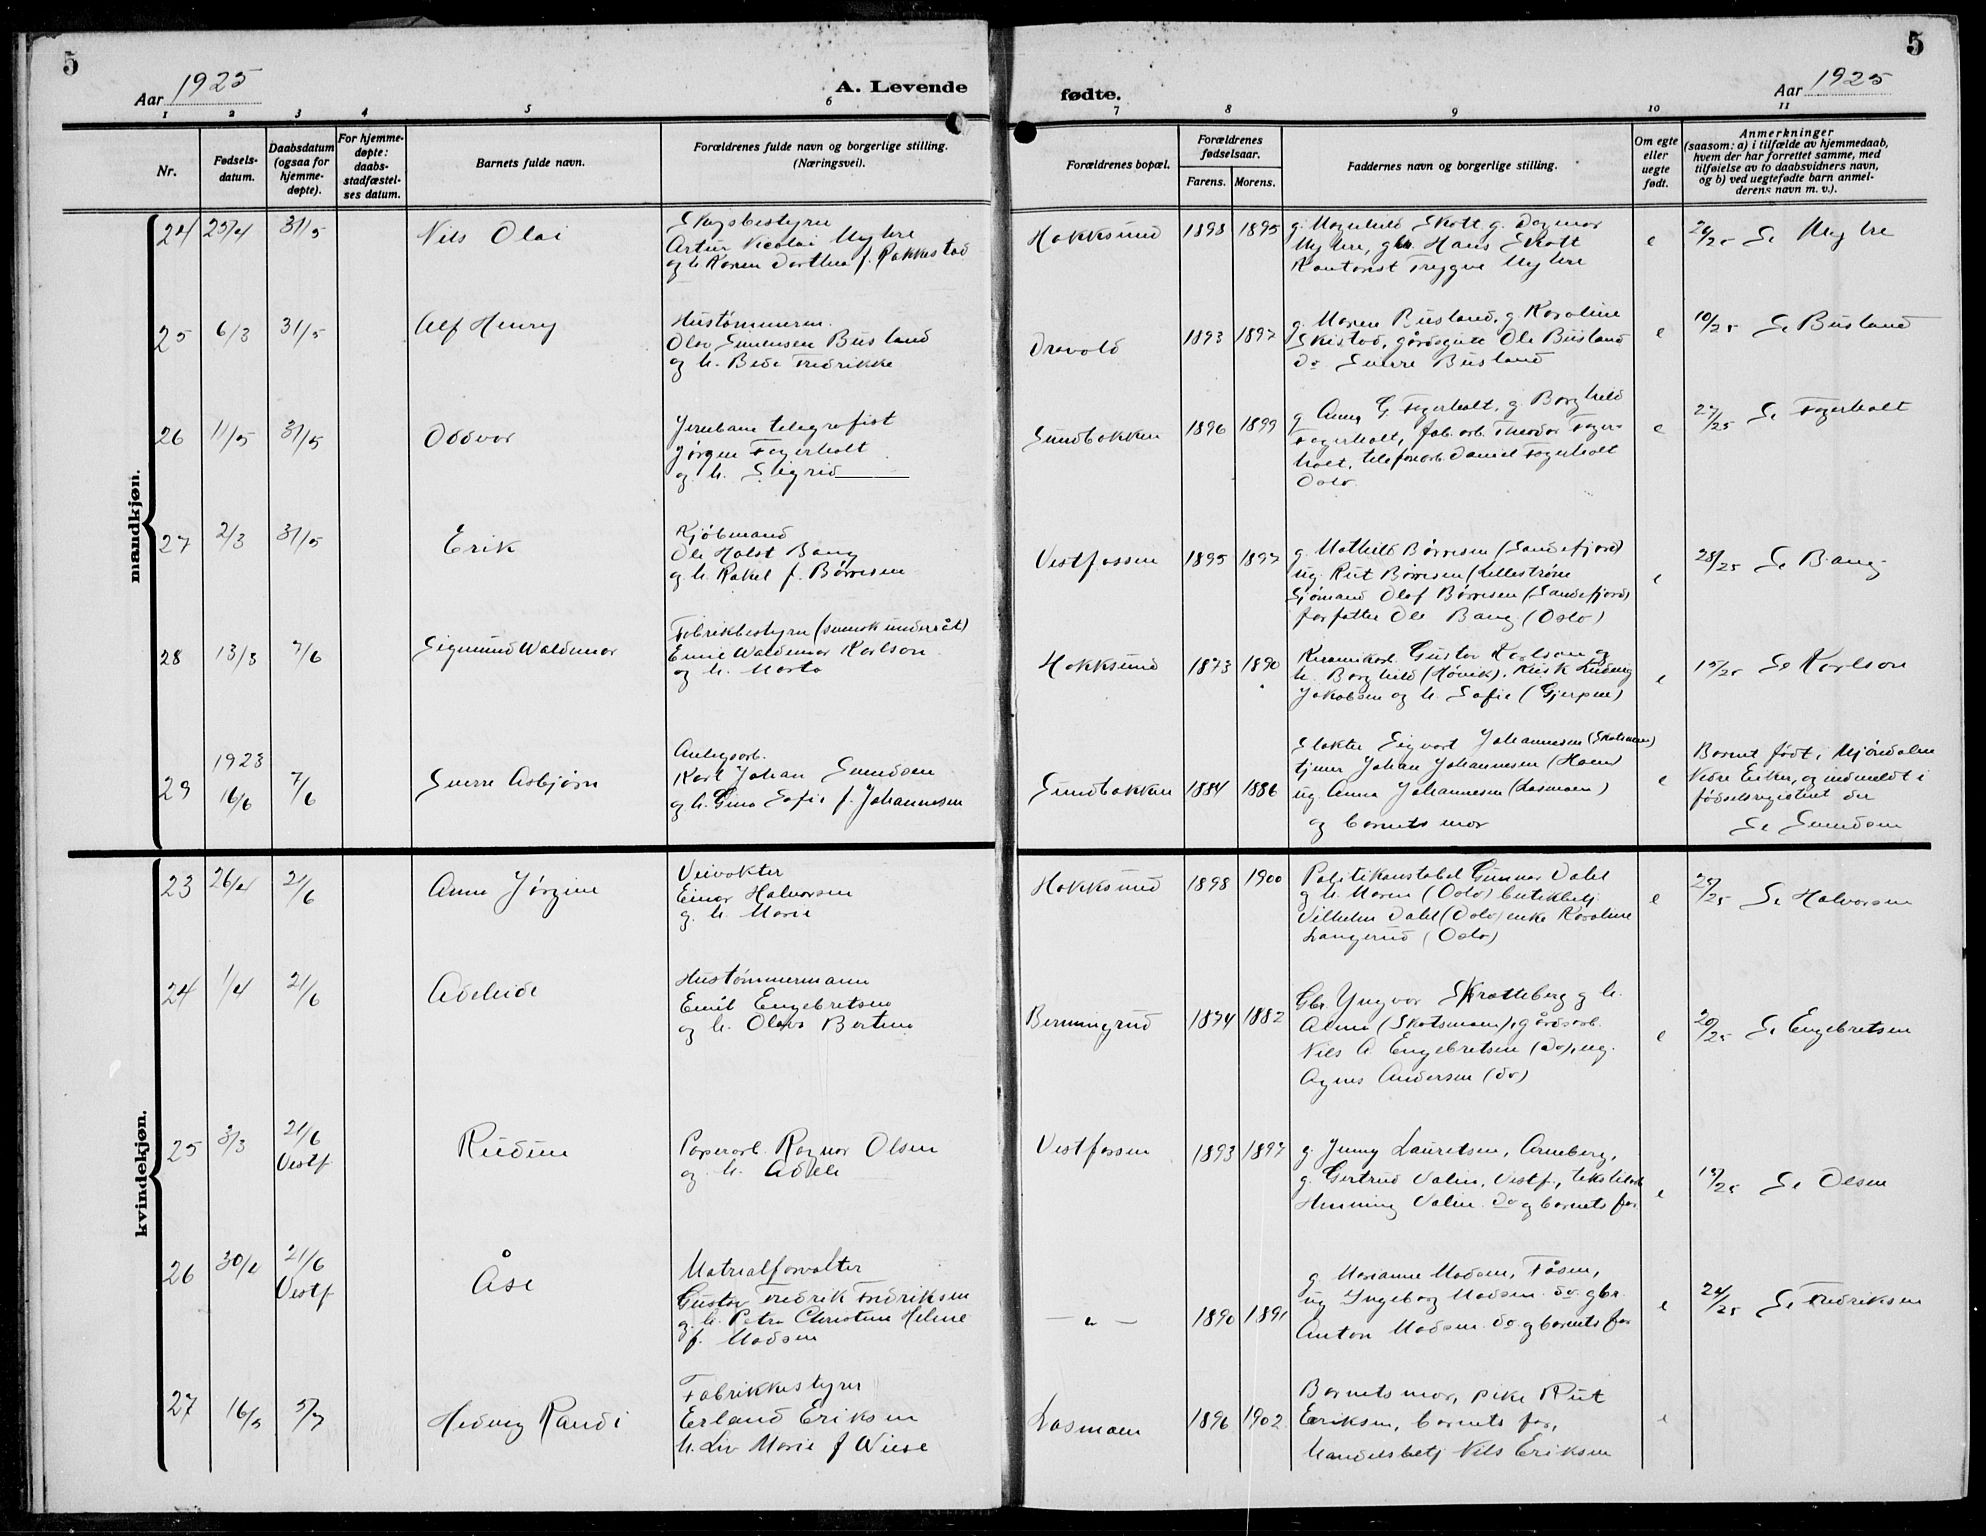 5
Aar 1925
A. Levende
fødte.
Aar 1925
5
1 2 3 4 5 6 7 8 9 10 11
Nr.
Fødsels-
datum.
Daabsdatum
(ogsaa for
hjemme-
døpte).
For hjemme-
døpte:
daabs-
stadfæstel-
ses datum.
Barnets fulde navn.
Forældrenes fulde navn og borgerlige stilling.
(Næringsvei).
Forældrenes bopæl.
Forældrenes
fødselsaar.
Farens. Morens.
Faddernes navn og borgerlige stilling.
Om egte
eller
uegte
født.
Anmerkninger
(saasom: a) i tilfælde av hjemmedaab,
hvem der har forrettet samme, med
tilføielse av to daabsvidners navn,
og b) ved uegtefødte barn anmel-
derens navn m. v.).
mandkjøn.
24 25/4 31/5
Nils Olai
Skysbestyrer
Artur Nicolai Myhre
og h. Karen Dorthea f. Rakkestad
Hokksund 1898 1895
g. Magnhild Skott g. Dagmar
Myhre, gbr. Hans Skott
Kontorist Trygve Myhre
e
S. Myhre
25 6/3 31/5
Alf Henry
Hustømmerm.
Olav Emensen Busland
og h. Beda Fredrikke
Dravold 1893 1897
g. Maren Busland, g. Karoline
Skistad, gårdsgutt Ole Busland
do Sverre Busland
e
10/25 S. Busland
26 11/5 31/5
Oddvar
Jernbane telegrafist
Jørgen Fagerholt
og h. Sigrid
Sundbakken 1896 1899
g. Anna G. Fagerholt, g. Borghild
Fagerholt, fab.arb. Theodor Fager-
holt, telefonarb. Daniel Fagerholt
Oslo.
e
27/25 S. Fagerholt
27 2/3 31/5
Erik
Kjøbmand
Ole Holst Bang
og h. Rakel f. Børresen
Vestfossen 1895 1897
g. Mathild Børresen (Sandefjord)
ug. Rut Børresen (Lillestrøm
Sjømand Olaf Børresen (Sandefjord)
forfatter Ole Bang (Oslo)
e
28/25 S. Bang
28 13/3 7/6
Sigmund Waldemar
Fabrikbestyrer (svensk undersåt)
Emil Waldemar Karlson
og h. Marta
Hokksund 1873 1890
Keramikarb. Gustav Karlson og
h. Borghild (Høvik), Kusk Ludvig
Jakobsen og h. Sofie (Gjerpen)
e
15/25 S. Karlson
29 1923
16/6 7/6
Sverre Asbjørn
Anlegsarb.
Karl Johan Svendsen
og h. Gina Sofie f. Johannesen
Sundbakken 1884 1886
Slakter Sigvart Johannesen (Skotsmoen)
tjener Johan Johannesen (Hoen)
ug. Anna Johannesen (Losmoen)
og barnets mor
e
Barnet født i Mjøndalen
Nedre Eiker, og indmeldt i
fødselsregisteret der
S. Svendsen
kvindekjøn.
23 26/4 21/6
Anne Jørgine
Veivokter
Einar Halvorsen
og h. Marie
Hokksund 1898 1900
Politikonstabel Gunnar Dahl
og h. Maren (Oslo) butikbetj.
Vilhelm Dahl (Oslo) enke Karoline
Langerud (Oslo)
e
29/25 S. Halvorsen
24 1/4 21/6
Adeleide
Hustømmermann
Emil Engebretsen
og h. Olava Bertine
Bermingrud 1874 1882
Gbr. Yngvar Skratteberg og h.
Alma (Skotsmoen), gårdsarb.
Nils A Engebretsen (do), ug.
Agnes Andersen (do)
e
20/25 S. Engebretsen
25 3/3 21/6
Vestf
Rudun
Papirarb. Ragnar Olsen
og h. Adele
Vestfossen 1893 1897
g. Jenny Lauretsen, Arneberg,
g. Gertrud Valin, Vestf., tekstilarb
Henning Valin do og barnets far
e
15/25 S. Olsen
26 30/4 21/6
Vestf
Åse
Matrialforvalter
Gustav Fredrik Fredriksen
og h. Petra Christine Helene
f. Madsen
— „ — 1890 1891
g. Marianne Madsen, Fåsen,
ug Ingeborg Madsen do gbr.
Anton Madsen do og barnets far
e
24/25 S. Fredriksen
27 16/5 5/7
Hedvig Randi
Fabrikkestyrer
Erland Eriksen
h. Liv Marie f Wiese
Losmoen 1896 1902
Barnets mor, pike Rut
Eriksen, barnets far,
handelsbetj Nils Eriksen
e